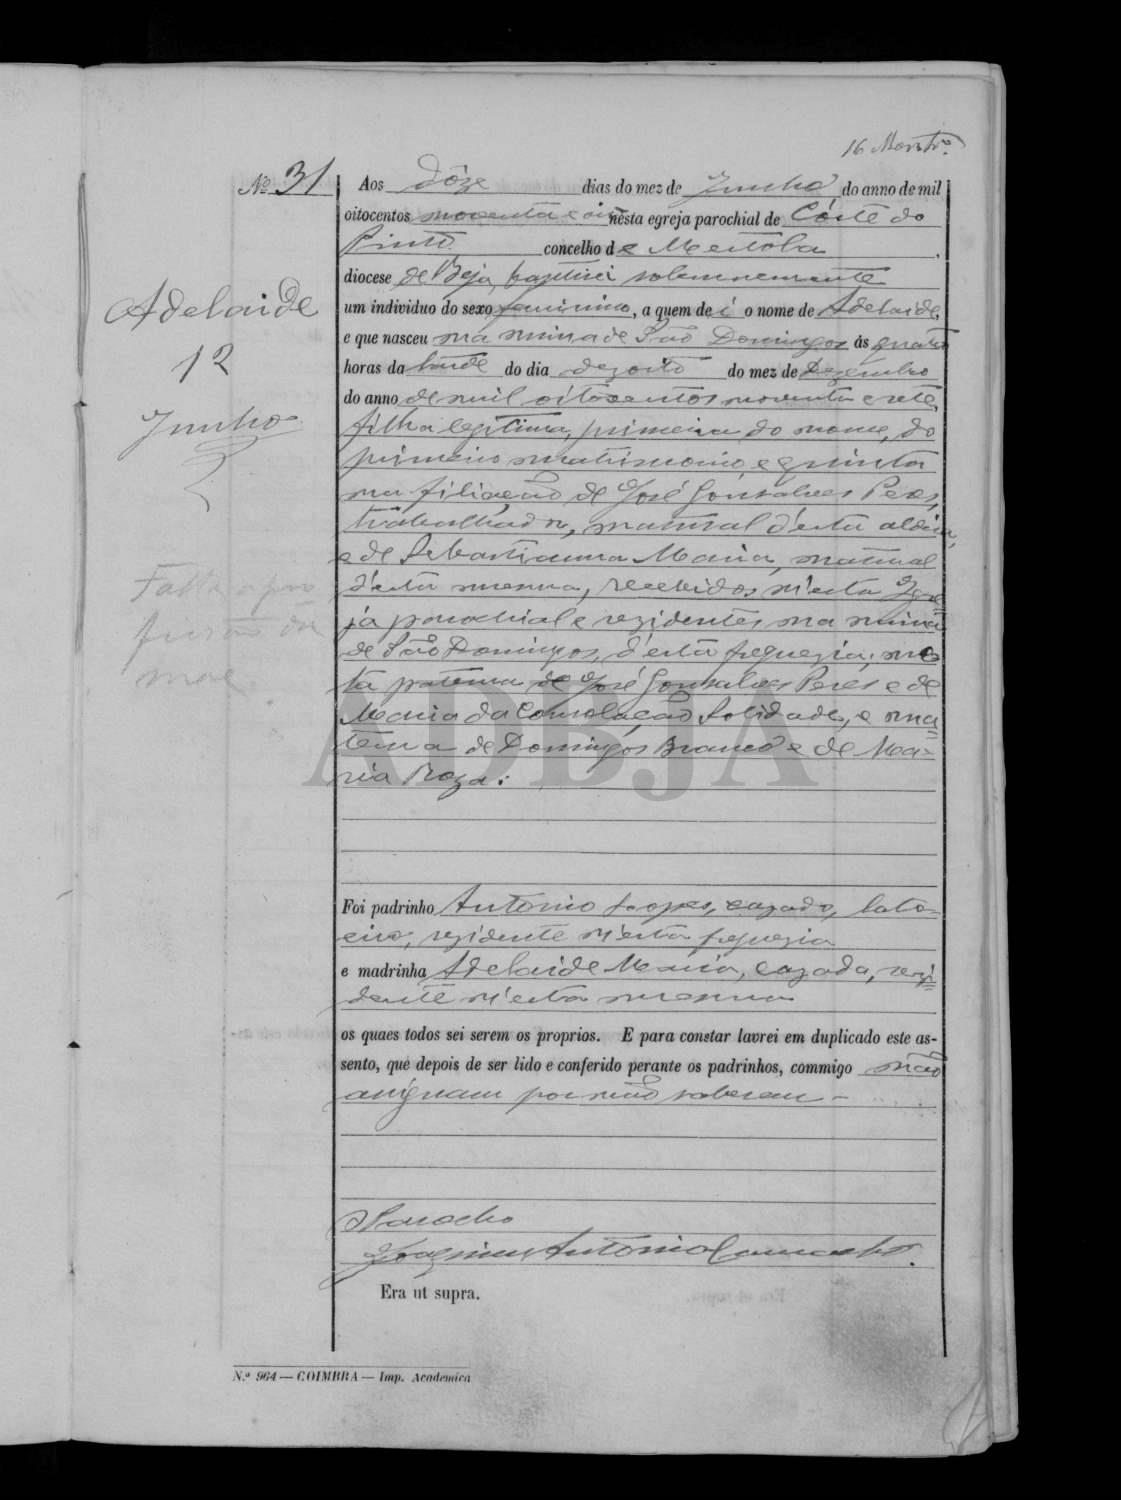 16
Nº 31
Aos Dôze dias do mez de Junho do anno de mil
oitocentos noventa e oito nesta egreja parochial de Córte do
Pinto concelho de Mertola
diocese de Beja, baptisei solemnemente
um individuo do sexo feminino, a quem dei o nome de Adelaide,
e que nasceu na mina de São Domingos ás quatro
horas da tarde do dia dezoito do mez de Dezembro
do anno de mil oitocentos noventa e sete,
filha legitima, primeira do nome, do
primeiro matrimonio e quinta
na filiação de José Gonsalves Peres,
trabalhador, natural d'esta aldeia,
e de Sebastianna Maria, natural
d'esta mesma, recebidos n'esta Egre=
ja parochial e rezidentes na mina
de São Domingos, d'esta freguezia; ne
ta paterna de José Gonsalves Peres e de
Maria da Consolação Solidade, e ma=
terna de Domingos Branco e de Ma-
ria Roza:
Adelaide
12
Junho
Falta a pro
fissão da
mae
Foi padrinho Antonio Lopes, cazado, lato=
eiro, rezidente n'esta freguezia
e madrinha Adelaide Maria, cazada, rezi=
dente n'esta mesma
os quaes todos sei serem os proprios. E para constar lavrei em duplicado este as-
sento, que depois de ser lido e conferido perante os padrinhos, commigo não
assignam por não saberem -
O Parocho
Joaquim Antonio
Era ut supra.
N.º 964 — COIMBRA — Imp. Academica
ADBJA